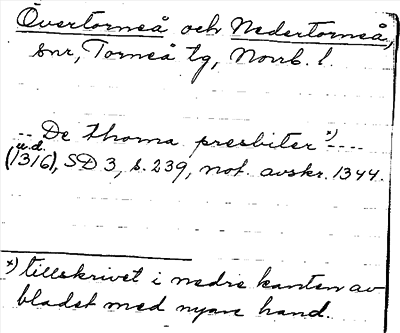 Övertorneå och Nedertorneå,
snr, Torneå tg, Norrb. l.
-- De thoma presbiter x) ----
u.d.
(1316), SD 3, s. 239, not. avskr. 1344.
x) tillskrivet i nedre kanten av
bladet med nyare hand.